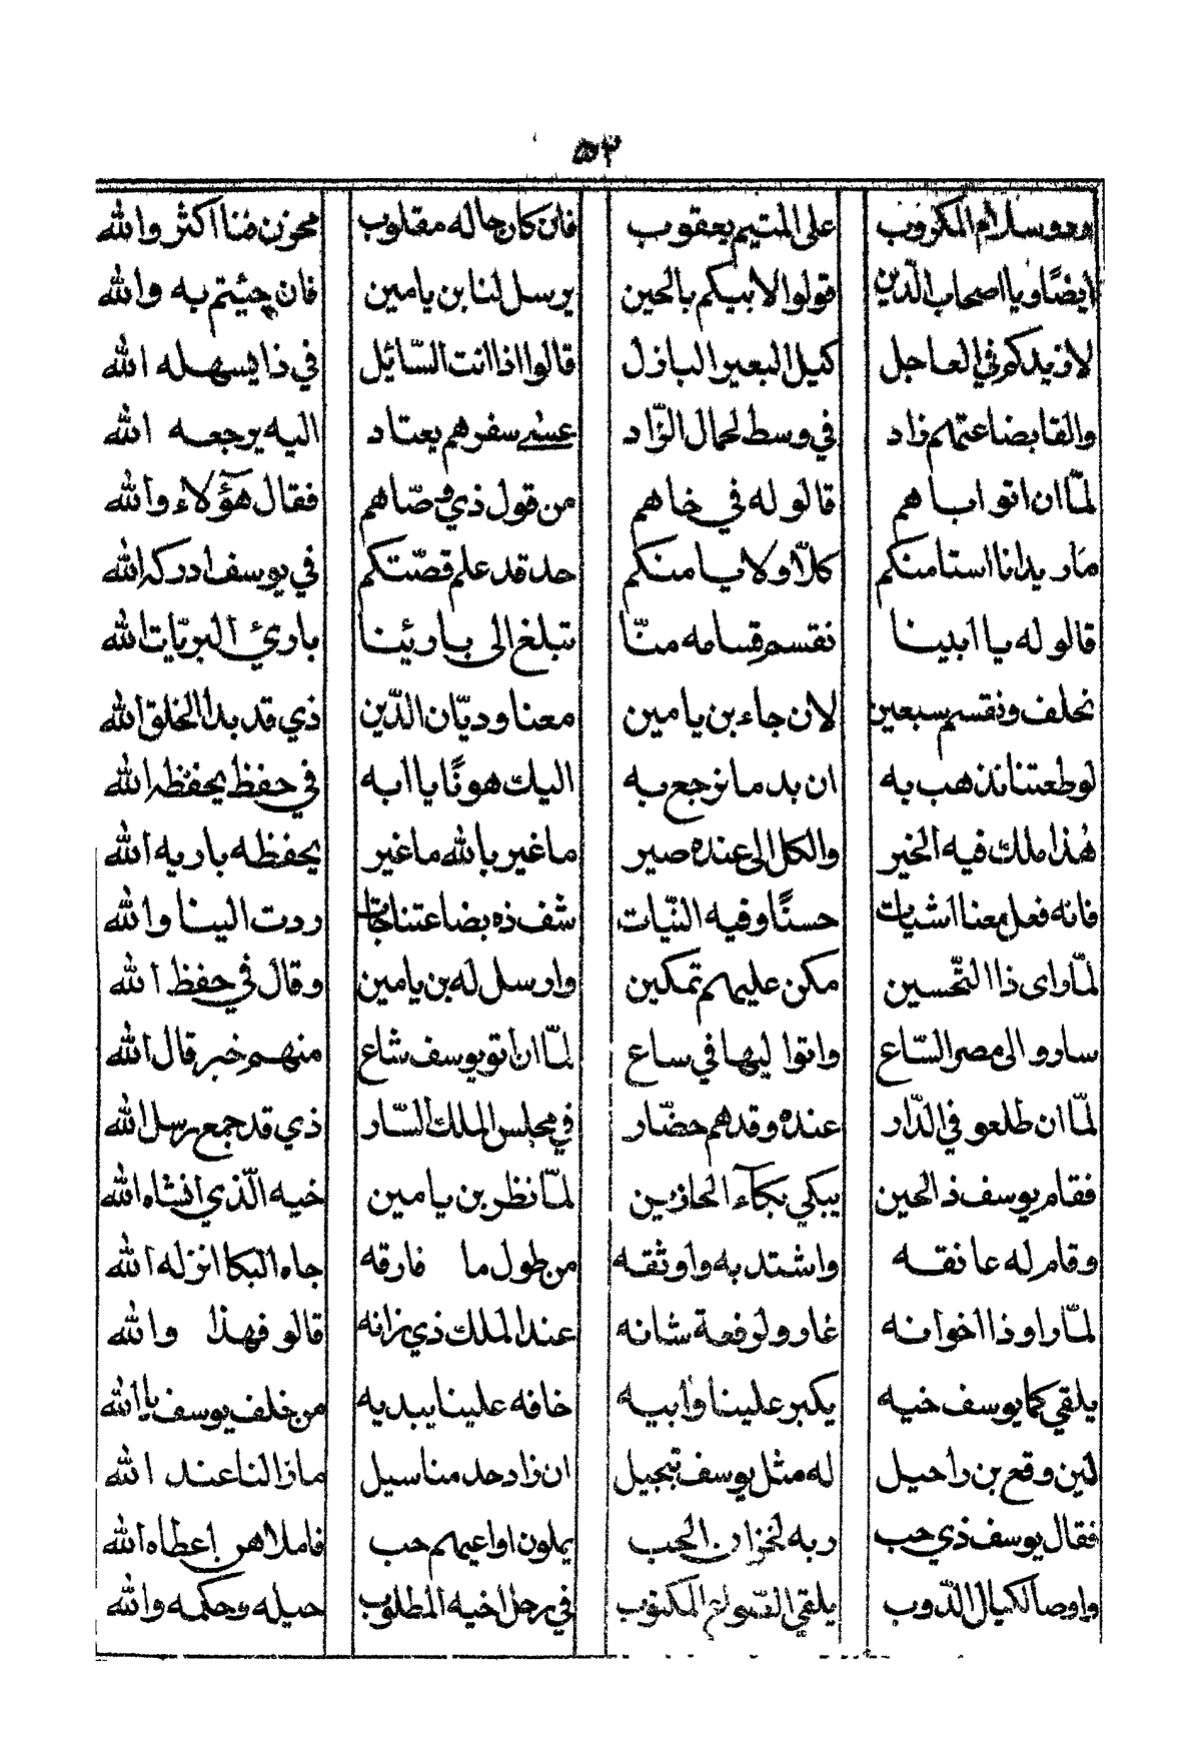 ٥٣
ودوسلام المكروب على المتيم يعقوب فان كان حاله مقلوب محزن منا اكثر والله
ايضًا ويا اصحاب الذّين قولوا لابيكم بالحين يرسل لنا بن يامين فان جئيتم به والله
لازيدكم في العاجل كيل البعير البازل قالوا اذا انت السّائيل في ذا يسهله الله
والقا بضاعتهم زاد في وسط لحمال الزّاد عسٰى سفرهم يعتاد اليه يرجعه الله
لمّا ان اتو اباهم قالو له في خاهم من قول ذي وصّاهم فقال هؤلاء والله
ما ريد انا استامنكم كلّا ولا يامنكم حد قد علم قصّتكم في يوسف ادركه الله
قالو له يا ابينا نقسم قسامه منّا تبلغ الى بارئينا بارئ البريّات الله
نحلف ونقسم سبعين لان جاء بن يامين معنا وديّان الدّين ذي قد بدا الخلق الله
لوطعتنا نذهب به ان بد ما نرجع به اليك هونًا يا ابه في حفظ يحفظه الله
هٰذا ملك فيه الخير والكل الى عنده صير ما غير بالله ما غير يحفظه باريه الله
فانه فعل معنا اشيات حسنًا وفيه النيّات شف ذه بضاعتنا جات ردت الينا والله
لمّا راى ذا التّحسين مكن عليهم تمكين وارسل له بن يامين وقال في حفظ الله
سارو الى مصر السّاع واتوا ليها في ساع لمّا ان اتو يوسف شاع منهم خبر قال الله
لمّا ان طلعو في الدّار عنده وقدهم حضّار في مجلس الملك السّار ذي قد جمع رسل الله
فقام يوسف ذ الحين يبكي بكآء الحازين لمّا نظر بن يامين خيه الّذي انشاه الله
وقام له عانقه واشتد به واوثقه من طول ما فارقه جاه البكا انزله الله
لمّا راو ذا اخوانه غارو لرفعة شانه عند الملك ذي زانه قالو فهذا والله
يلقي كما يوسف خيه يكبر علينا وابيه خافه علينا يبديه من خلف يوسف يا الله
لين وقع بن راحيل له مثل يوسف تبجيل ان زاد حد منا سيل ماذا لنا عند الله
فقال يوسف ذي حب ربه لخزان الحب يملون اواعيهم حب فاملاهن اعطاه الله
واوصا لكيال الدّوب يلقي الصواع المكتوب في رحل اخيه المطلوب حيله وحكمه والله